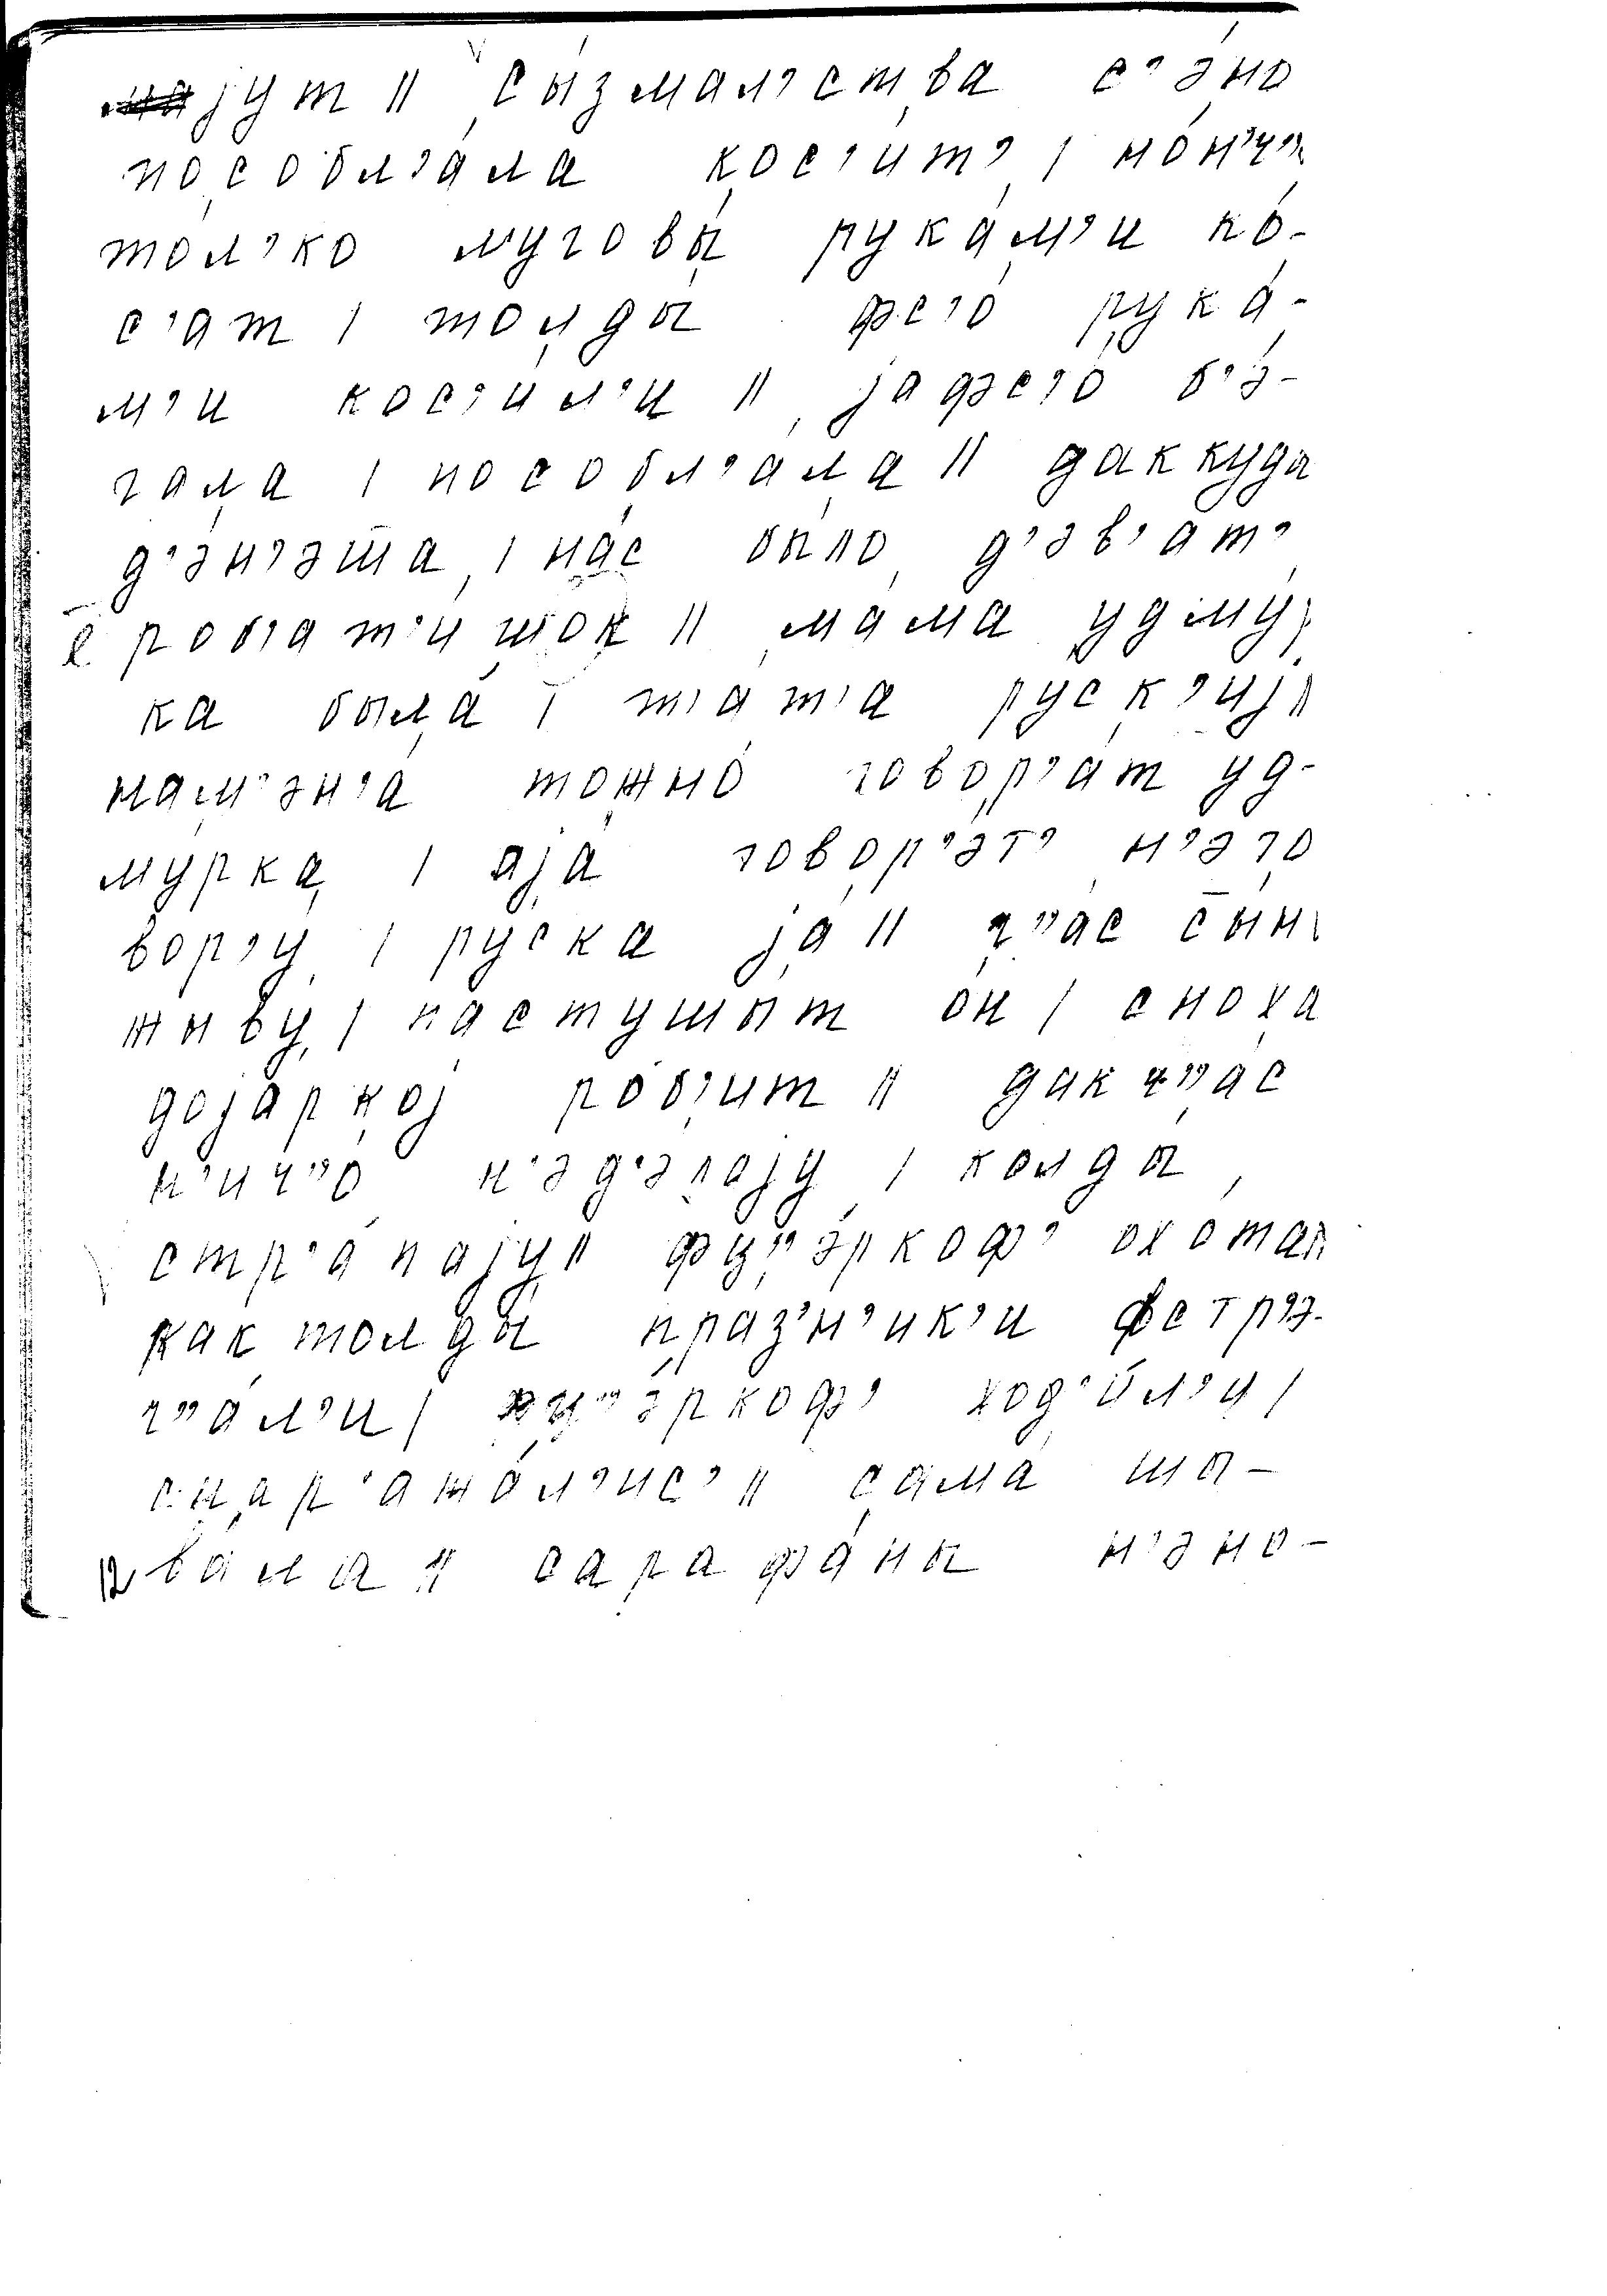 јут // сы́змал’ства с’э́но
пособл’а́ла кос’и́т’ / но́н’ч’’
то́л’ко муговы́ рука́м’и ко́-
с’ат / толды́ фс’о́ рука́-
м’и кос’и́л’и // јафс’о́ б’э́-
гала / пособл’а́ла // даккуды
д’э́н’эш̄а / на́с было д’э́в’ат’
роб’ат’и́шок // ма́ма удму́р
ка была́ / т’а́т’а ру́ск’иј //
нам’эн’а́ тожно́ говор’а́т уд-
му́рка / аја́ говор’э́т’ н’эго
вор’у́ / ру́ска ја́ // ч’’ас с̄ы́н
жыву́ / пастушы́т о́н / сноха́
доја́ркој ро́б’ит // дакч’’ас
н’ич’’о́ н’эд’э́лају / колды́
стр’а́пају // фц’’э́ркоф’ охота //
кактолды́ пра́з’н’ик’и фстр’э-
ч’’а́л’и / фц’’э́ркоф’ ход’и́л’и /
снар’ажа́л’ис’ // сама́ шы-
ва́ла // сарафа́ны н’эно-